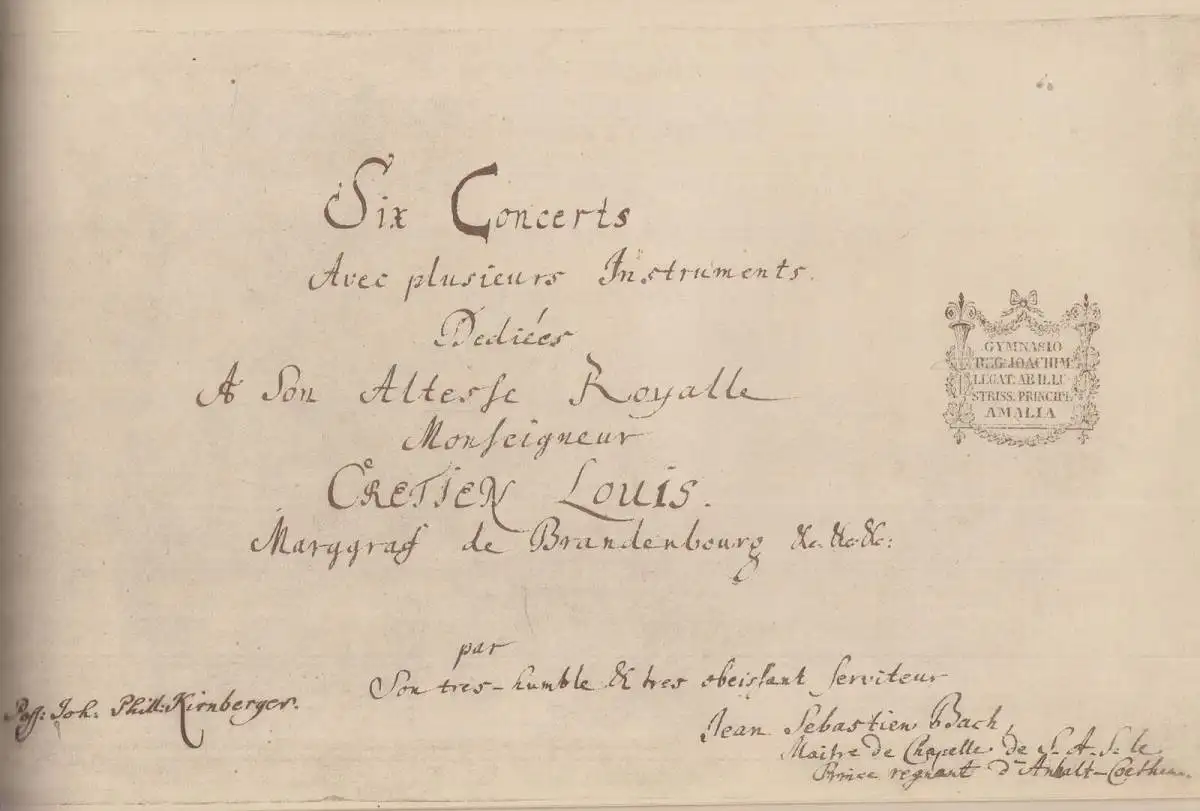 Six Concerts
Avec plusieurs Instruments.
Dediées
A Son Altesse Royalle
Monseigneur
CRETIEN LOUIS.
Marggraf de Brandenbourg &c. &c. &c:
par
Son tres-humble & tres obeissant serviteur
Jean Sebastien Bach,
Maitre de Chapelle de S. A. S. le
Prince regnant d'Anhalt-Coethen.
Poss: Joh. Phill: Kirnberger.
GYMNASIO
REG. JOACHIM.
LEGAT. AB ILLU
STRISS. PRINCIPE
AMALIA